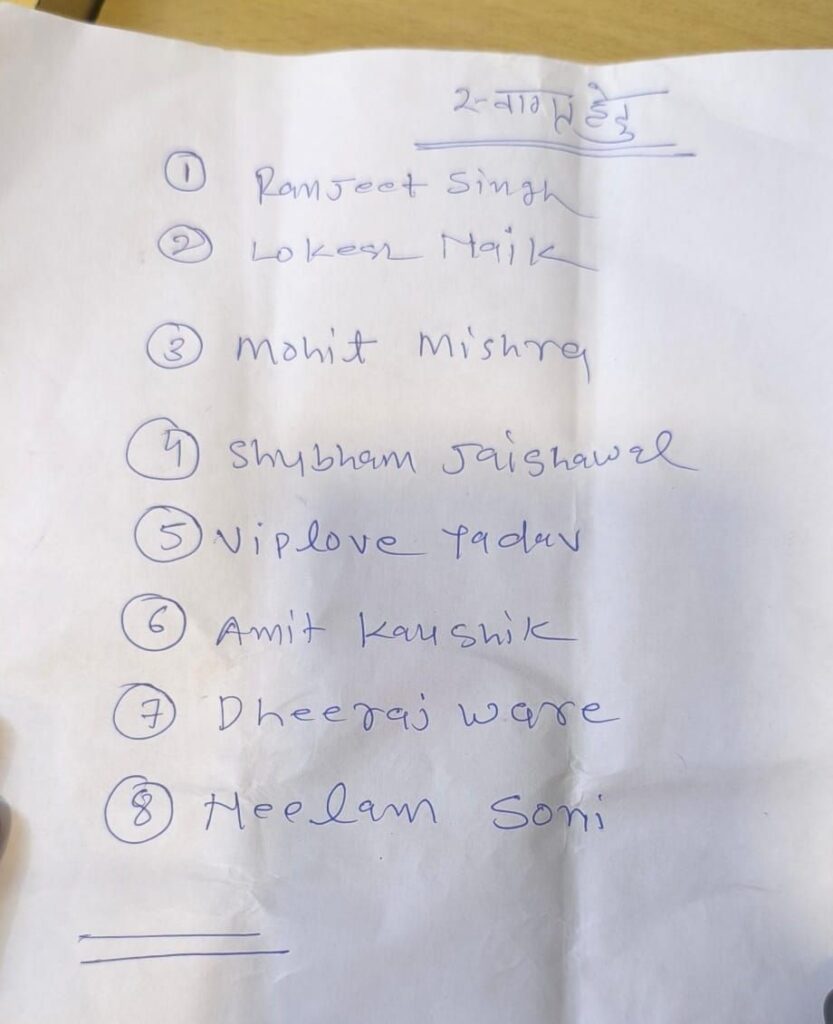 ① Ranjeet Singh
② Lokesh Naik
③ Mohit Mishra
④ Shubham Jaishawal
⑤ Viplove Yadav
⑥ Amit Kaushik
⑦ Dheeraj Ware
⑧ Neelam Soni